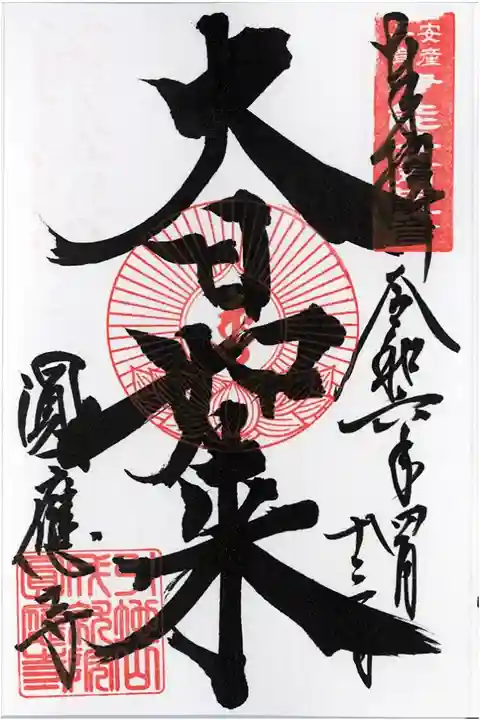 安産
奉拝
令和六年四月
十三日
大日如来
圓應寺